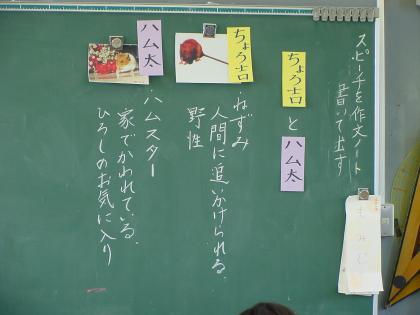 スピーチを作文ノート
書いて出す
ちょろ吉
と
ハム太
ちょろ吉
・ねずみ
人間に追いかけられる。
野性
ハム太
・ハムスター
家でかわれている。
ひろしのお気に入り
もみじ